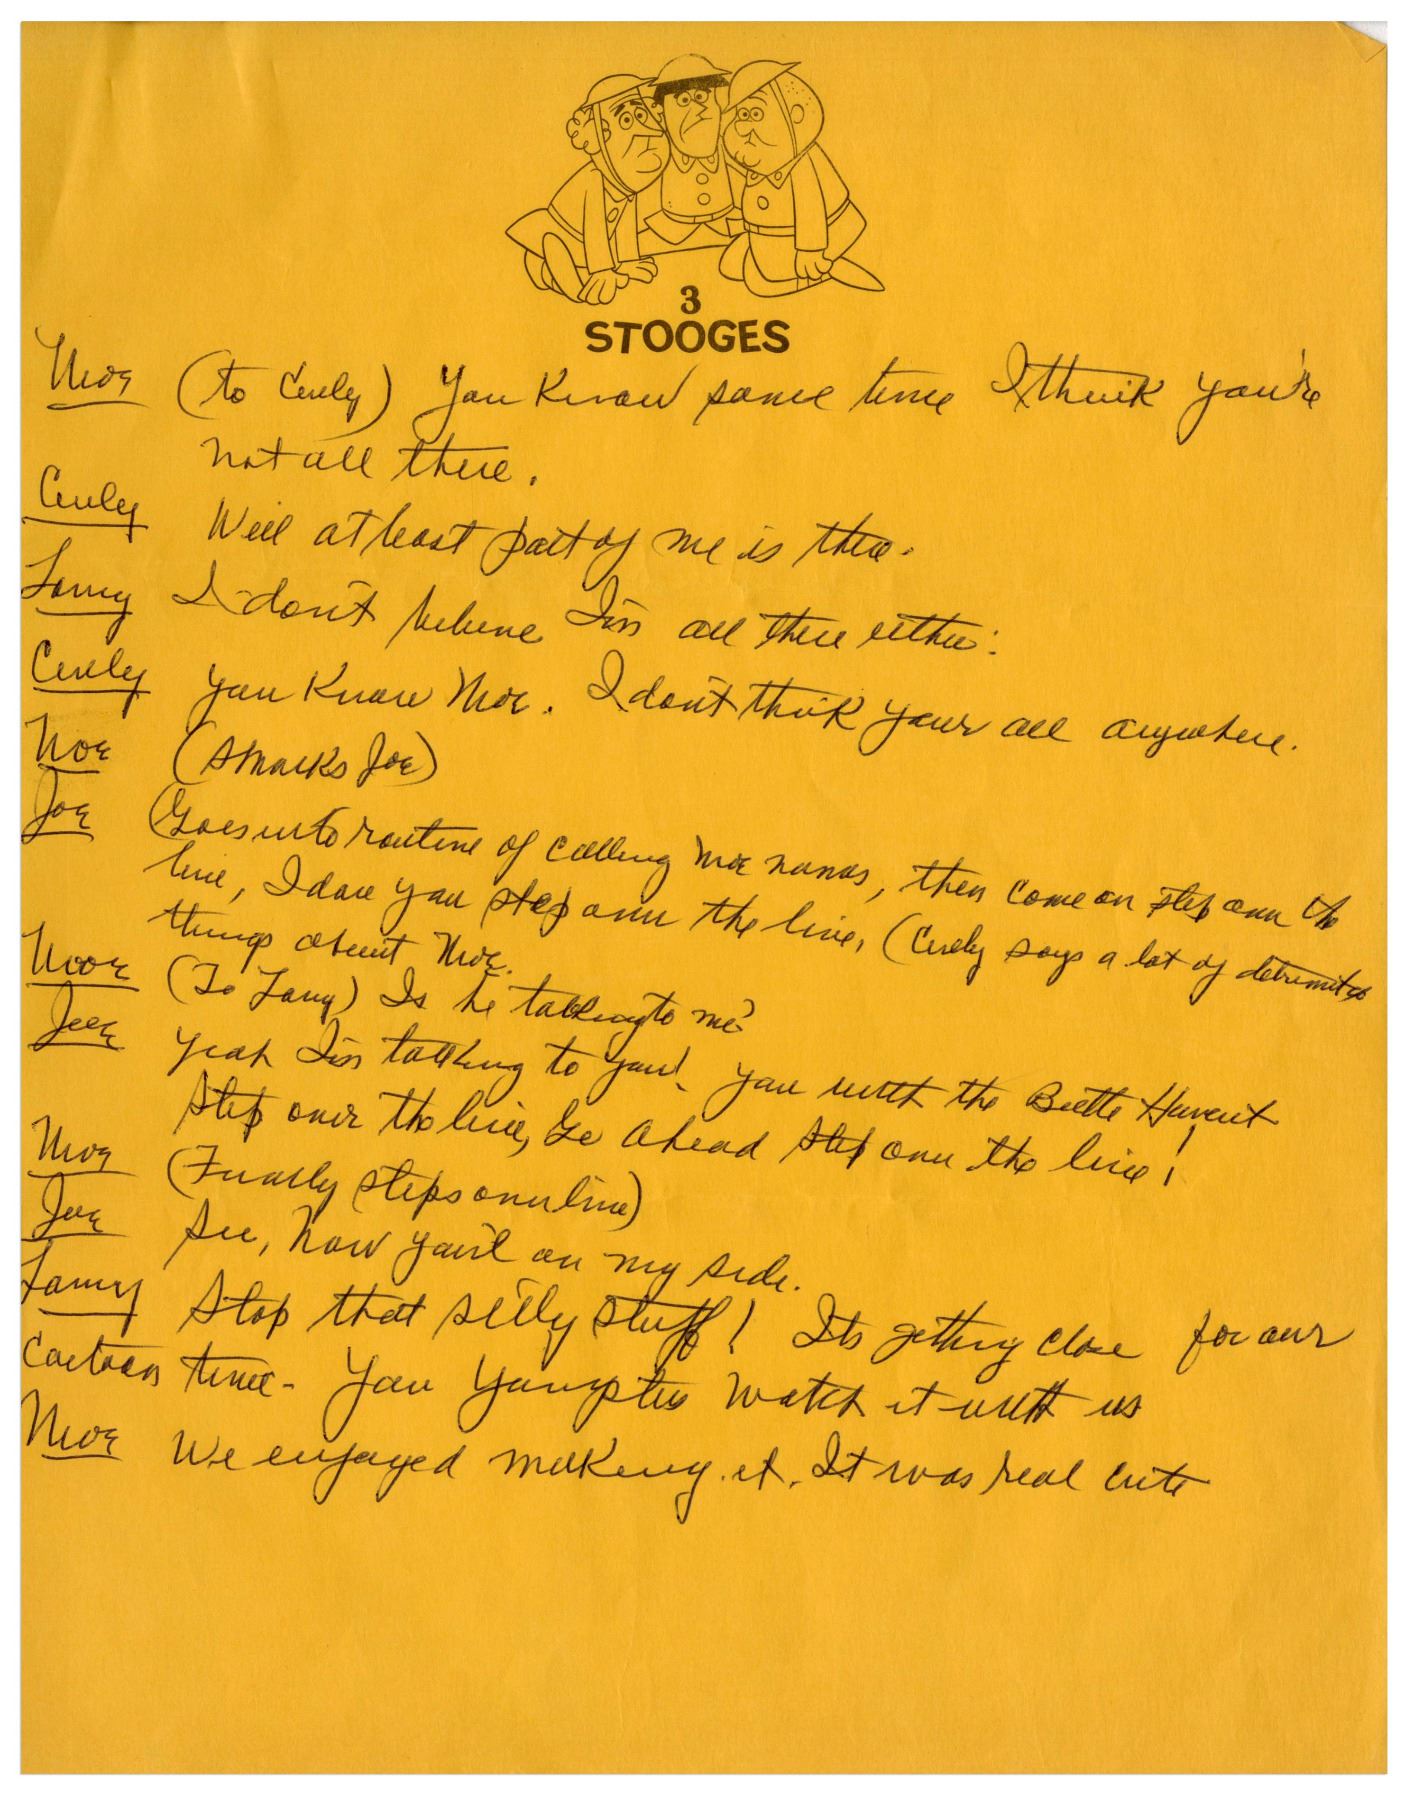 3
STOOGES
Moe (to Curly) You Know some time I think you're
not all there.
Curly Well at least part of me is there.
Larry I don't believe I'm all there either.
Curly You Know Moe. I don't think your all anywhere.
Moe (smacks Joe)
Joe (Goes into routine of calling Moe names, then come on step over the
line, I dare you step over the line, (Curly says a lot of
things about Moe.
Moe (To Larry) Is he talking to me?
Joe Yeah I'm talking to you! You with the Beetle Haircut
Step over the line, Go Ahead step over the line!
Moe (Finally steps over line)
Joe See, Now you're on my side.
Larry Stop that silly stuff! Its getting close for our
Cartoon time - You Youngsters Watch it with us
Moe We enjoyed making it. It was real cute